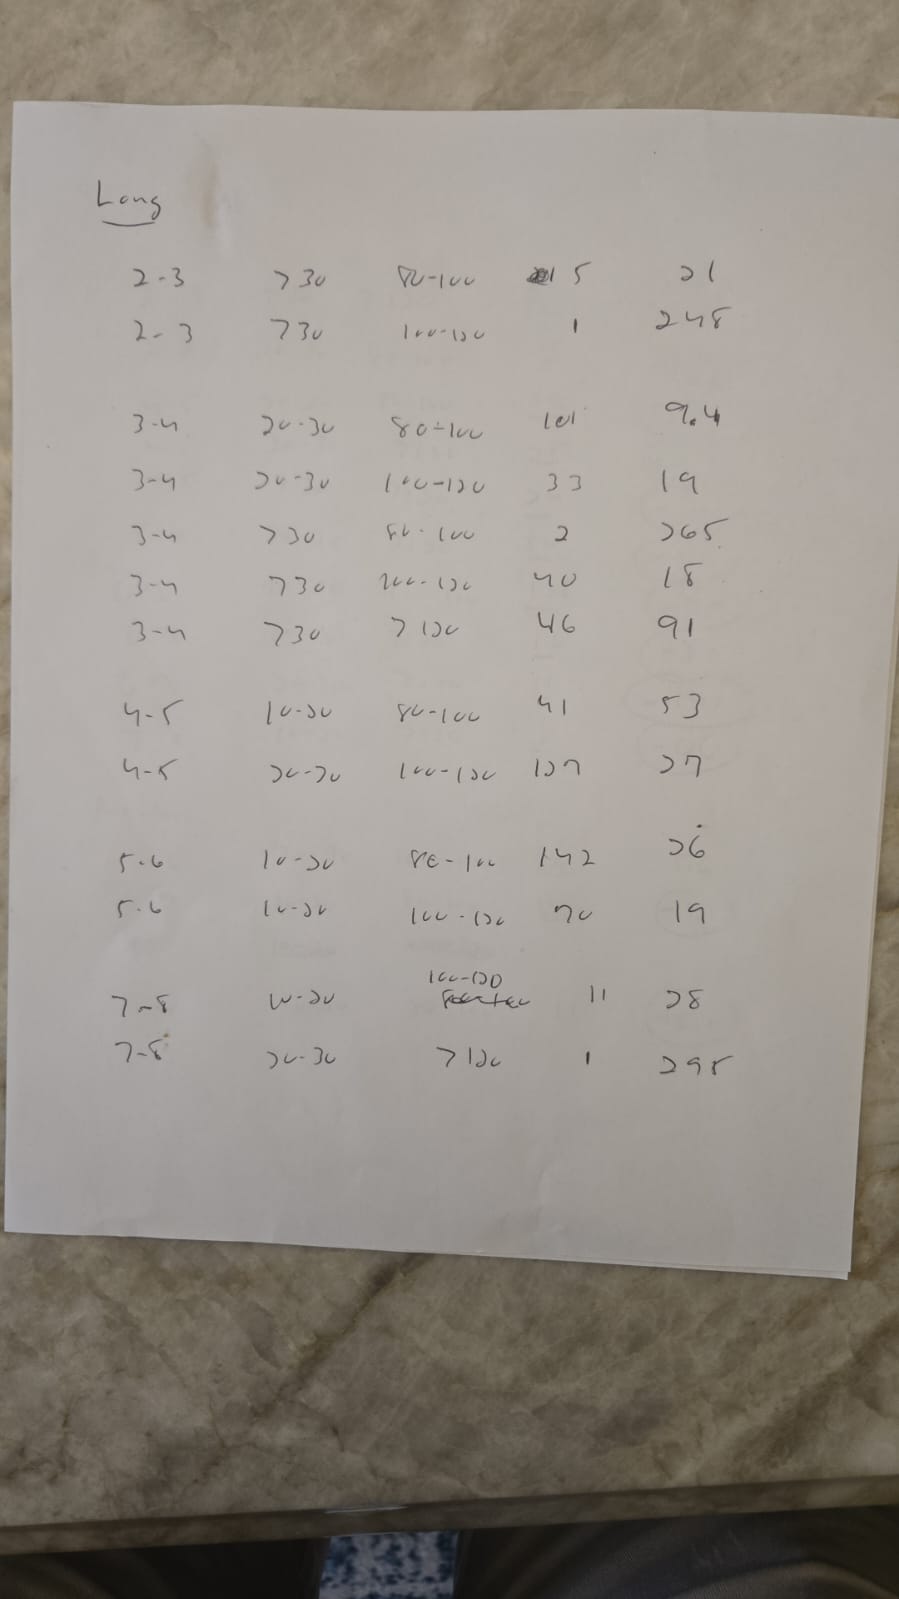 Long
2-3 >30 80-100 5 21
2-3 >30 100-120 1 248
3-4 20-30 80-100 101 9.4
3-4 20-30 100-120 33 19
3-4 >30 80-100 2 265
3-4 >30 100-120 40 18
3-4 >30 >120 46 91
4-5 10-20 80-100 41 53
4-5 20-30 100-120 127 27
5-6 10-20 80-100 142 26
5-6 10-20 100-120 70 19
7-8 10-20 100-120 11 28
7-8 20-30 >120 1 295